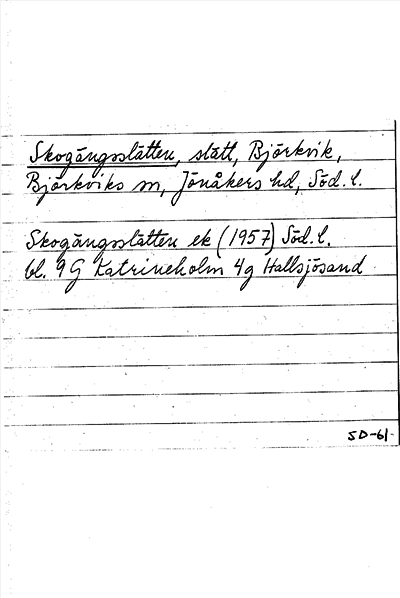 Skogängsslåtten, slått, Björkvik,
Björkviks sn, Jönåkers hd, Söd. l.
Skogängsslåtten ek (1957) Söd. l.
bl. 9G Katrineholm 4g Hallsjösand
SD-61